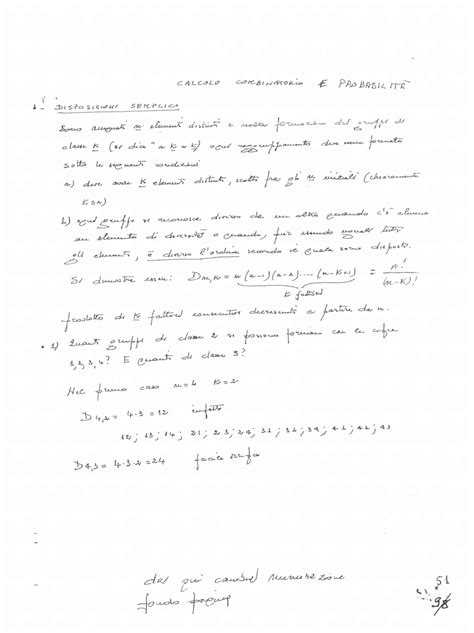 CALCOLO COMBINATORIO E PROBABILITÀ
1- DISPOSIZIONI SEMPLICI
Sono assegnati n elementi distinti e si formano dei gruppi di
classe K (si dica n K ) ogni raggruppamento deve essere formato
sotto le seguenti condizioni
a) deve avere K elementi distinti, scelto fra gli n iniziali (chiaramente
K≤n)
b) ogni gruppo si riconosce diverso da un altro quando c'è almeno
un elemento di diversità o quando, pur essendo uguali tutti
gli elementi, è diverso l'ordine secondo il quale sono disposti.
Si dimostra essere: Dn,K = n(n-1)(n-2)....(n-K+1) = n!/(n-K)!
K fattori
prodotto di K fattori consecutivi decrescenti a partire da n.
• 1) Quanti gruppi di classe 2 si possono formare con le cifre
1,2,3,4? E quanti di classe 3?
Nel primo caso n=4 K=2
D4,2 = 4·3 = 12 infatti
12; 13; 14; 21; 23; 24; 31; 32; 34; 41; 42; 43
D4,3 = 4·3·2 = 24 facile
da qui cambia numerazione
fondo pagina
51
98